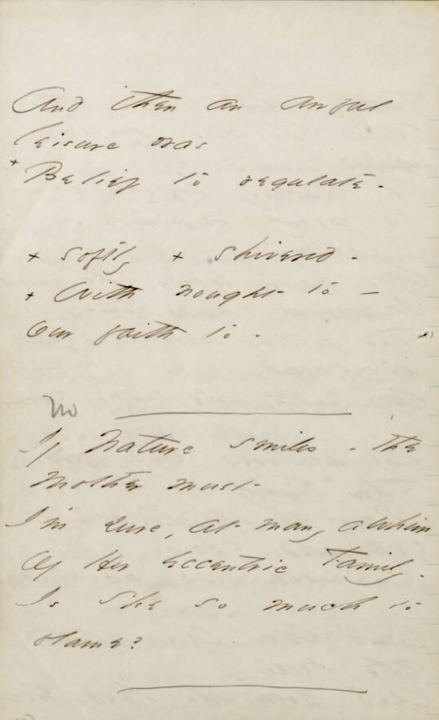 And then an awful
leisure was
+ Belief to regulate -
+ softly + shivered -
+ With nought to -
Our faith to -
No
If Nature smiles - the
Mother must
I'm sure, at many a whim
Of Her eccentric Family -
Is She so much to
blame?